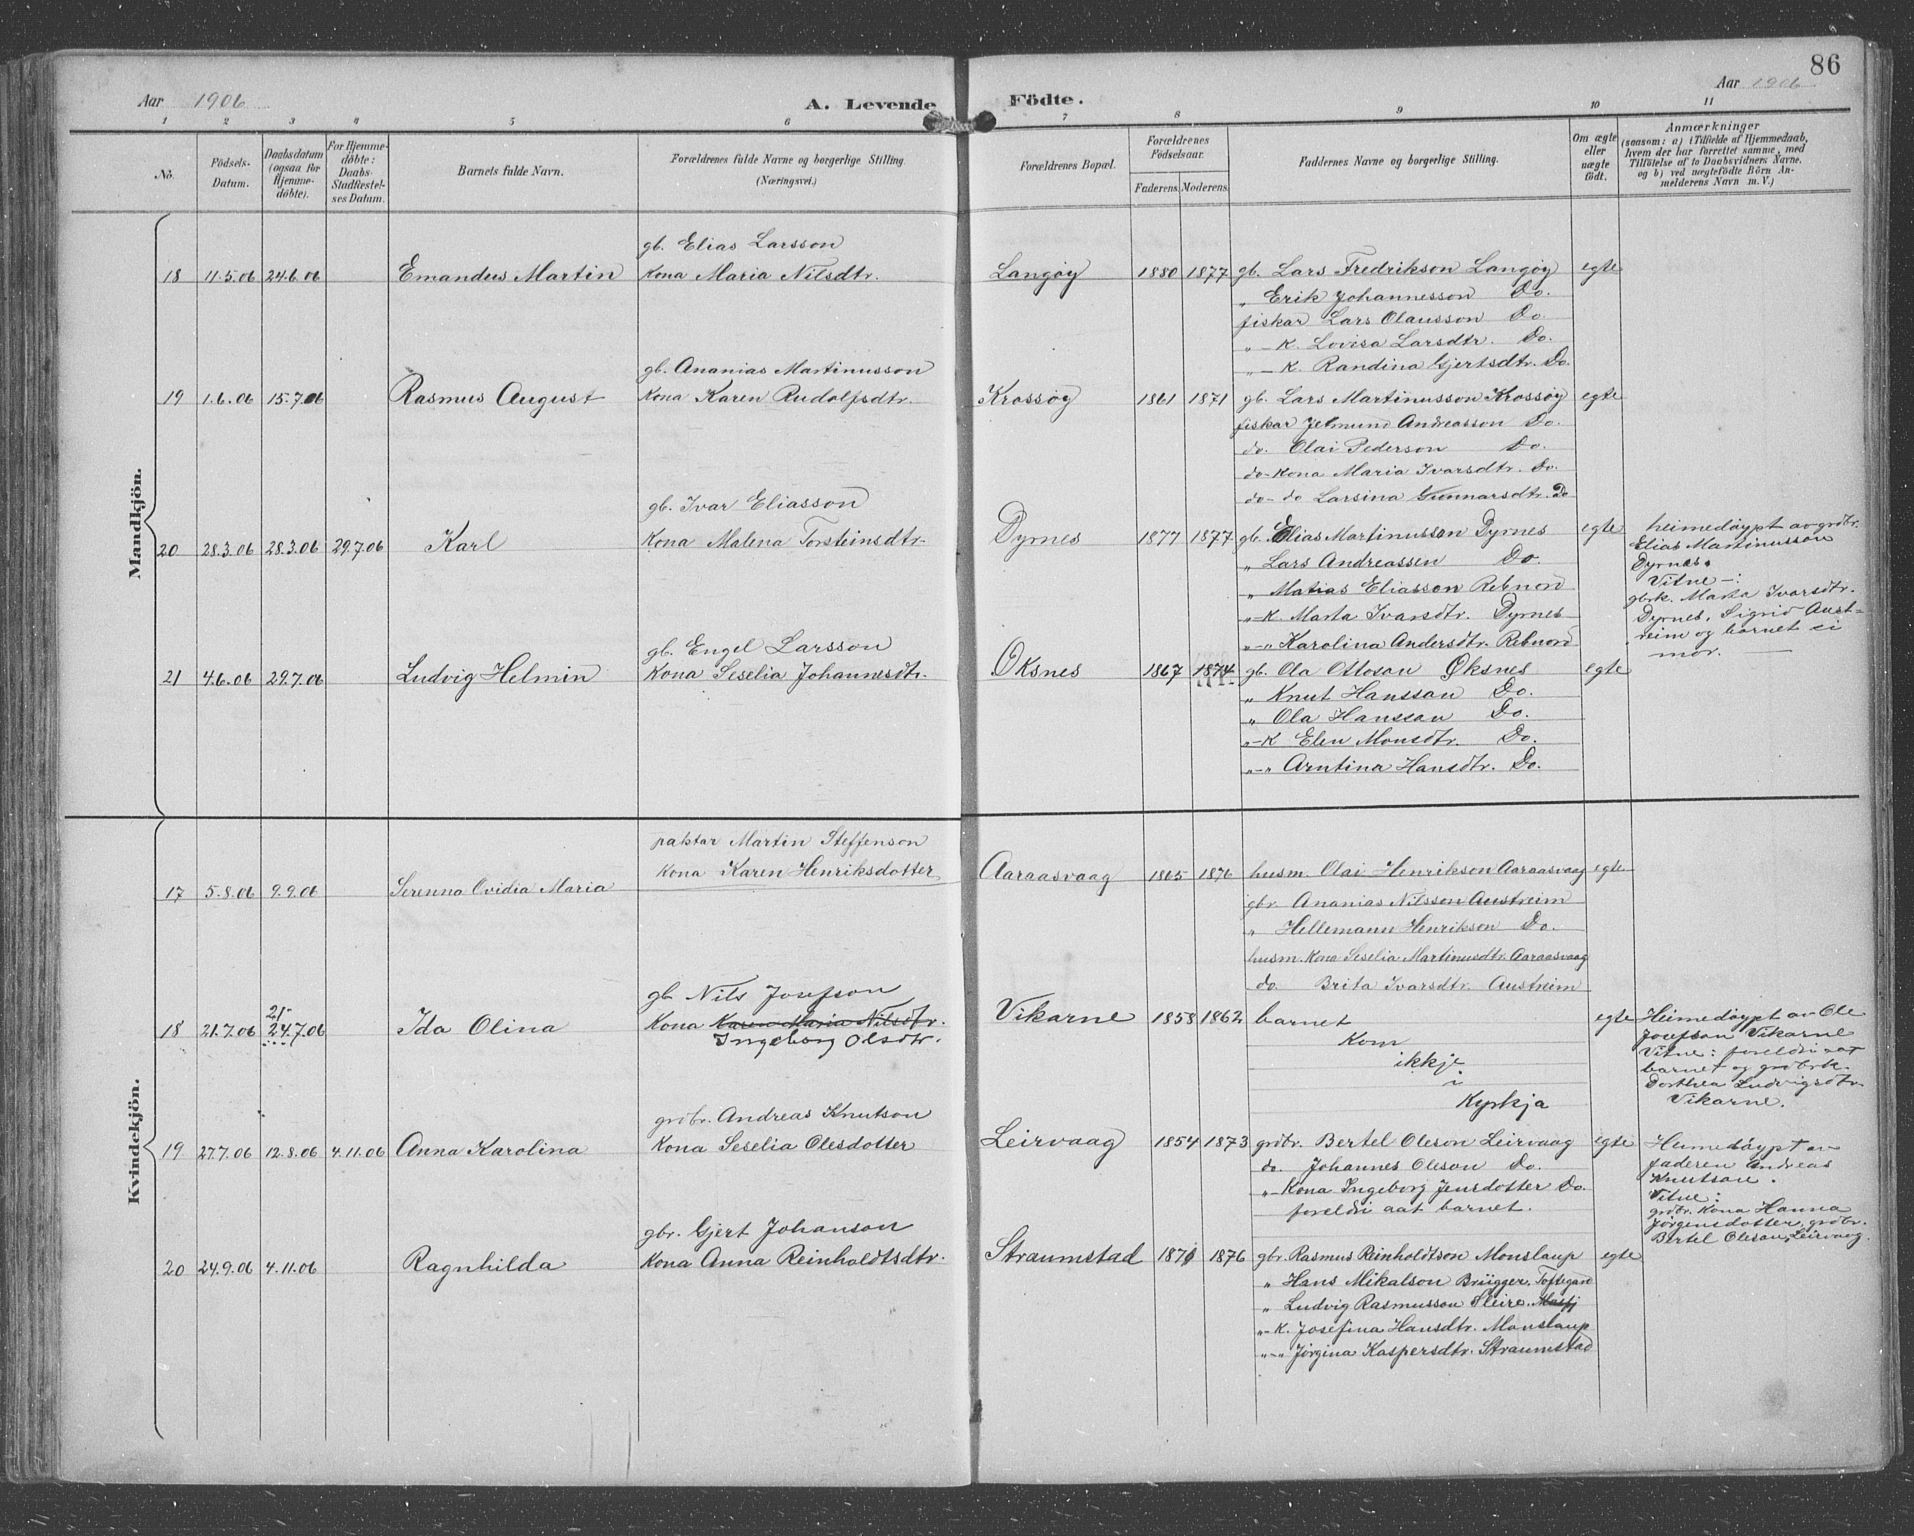 86
Aar 1906 A. Levende Födte. Aar 1906
1 2 3 4 5 6 7 8 9 10 11
No. Födsels-Datum. Daabsdatum (ogsaa for Hjemmedöbte). For Hjemmedöbte: Daabs-Stadfæstelses Datum. Barnets fulde Navn. Forældrenes fulde Navne og borgerlige Stilling. (Næringsvei.) Forældrenes Bopæl. Forældrenes Födselsaar. Faderens. Moderens. Faddernes Navne og borgerlige Stilling. Om ægte eller uægte födt. Anmærkninger (saasom: a) i Tilfælde af Hjemmedaab, hvem der har forrettet samme, med Tilföielse af to Daabsvidners Navne. og b) ved uægtefödte Börn Anmelderens Navn m. V.)
Mandkjön.
gb. Elias Larsson
18 11.5.06 24.6.06 Emandus Martin Kona Maria Nilsdtr. Langöy 1880 1877 gb. Lars Fredrikson Langöy egte
„ Erik Johannesson Do.
fiskar Lars Olausson Do.
„-K. Lovisa Larsdtr. Do.
„-K. Randina Gjertsdtr. Do.
gb. Ananias Martinusson
19 1.6.06 15.7.06 Rasmus August Kona Karen Rudolfsdtr. Krossöy 1861 1871 gb. Lars Martinusson Krossöy egte
fiskar Jetmund Andreasson Do.
do. Olai Pederson Do.
do-Kona Maria Ivarsdtr. Do.
do-do Larsina Gunnarsdtr. Do
gb. Ivar Eliasson
20 28.3.06 28.3.06 29.7.06 Karl Kona Malena Torsteinsdtr. Dyrnes 1877 1877 gb. Elias Martinusson Dyrnes egte
„ Lars Andreassen Do.
„ Matias Eliasson Rebnord
„-K. Marta Ivarsdtr. Dyrnes
„-„ Karolina Andersdtr. Rebnord
heimedöypt av grdbr.
Elias Martinusson
Dyrnes.
Vitne-:
gbrk. Marta Ivarsdtr.
Dyrnes, Sigrid Aust-
reim og barnet si
mor.
gb. Engel Larsson
21 4.6.06 29.7.06 Ludvig Helmin Kona Seselia Johannesdtr. Oksnes 1867 1874 gb. Ola Ottoson Öksnes egte
„ Knut Hansson Do.
„ Ola Hansson Do.
„-K Elen Monsdtr. Do.
„-„ Arntina Hansdtr. Do.
Kvindekjön.
paktar Martin Steffenson
17 5.8.06 9.9.06 Serenna Ovidia Maria Kona Karen Henriksdotter Aaraasvaag 1865 1876 husm. Olai Henrikson Aaraasvaag egte
gbr. Ananias Nilssen Austreim
„ Hellemann Henrikson Do.
husm. Kona Seselia Martinusdtr. Aaraasvaag
do Brita Ivarsdtr. Austreim
gb Nils Josefson
18 21.7.06 21- 24.7.06 Ida Olina Kona Karen Maria Nilsdtr. Vikarne 1858 1862 barnet egte
Ingeborg Olsdtr.
Kom
ikkje
i
Kyrkja
Heimedöypt av Ole
Josefson Vikarne
Vitne: foreldri aat
barnet og grdbrk.
Dorthea Ludvigsdtr.
Vikarne.
grdbr. Andreas Knutson
19 27.7.06 12.8.06 4.11.06 Anna Karolina Kona Seselia Olesdotter Leirvaag 1854 1873 grdbr. Bertel Oleson Leirvaag egte
do. Johannes Oleson Do.
„-Kona Ingeborg Jensdotter Do.
foreldri aat barnet.
Heimedöypt av
faderen Andreas
Knutson.
Vitne:
grdbr. Kona Hanna
Jörgensdotter, grdbr.
Bertel Oleson, Leirvaag.
gbr. Gjert Johanson
20 24.9.06 4.11.06 Ragnhilda Kona Anna Reinholdtsdtr. Straumstad 1870 1876 gbr. Rasmus Reinholdtson Monslaup egte
„ Hans Mikalson Brügger. Toftegard
„ Ludvig Rasmusson Sleire.
„-K. Josefina Hansdtr. Monslaup
„-„ Jörgina Kaspersdtr. Straumstad